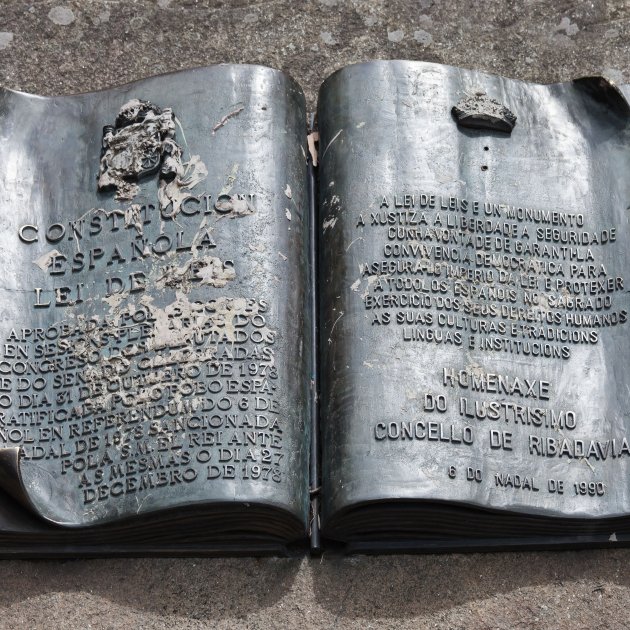 CONSTITUCION
ESPAÑOLA
LEI DE LEIS
APROBADA POLAS CORTES
EN SESIONS
CONGRESO DEPUTADOS
E DO SENADO CELEBRADAS
O DIA 31 DE OUTUBRO DE 1978
RATIFICADA POLO POBO ESPA
ÑOL EN REFERENDUM DO 6 DE
NADAL DE 1978 SANCIONADA
POLA S.M. EL REI ANTE
AS MESMAS O DIA 27
DECEMBRO DE 1978
A LEI DE LEIS E UN MONUMENTO
A XUSTIZA A LIBERDADE A SEGURIDADE
CUNHA VONTADE DE GARANTIPLA
CONVIVENCIA DEMOCRATICA PARA
ASEGURA-LO IMPERIO DA LEI E PROTEXER
A TODOLOS ESPAÑOIS NO SAGRADO
EXERCICIO DOS SEUS DEREITOS HUMANOS
AS SUAS CULTURAS E TRADICIONS
LINGUAS E INSTITUCIONS
HOMENAXE
DO ILUSTRISIMO
CONCELLO DE RIBADAVIA
6 DO NADAL DE 1990